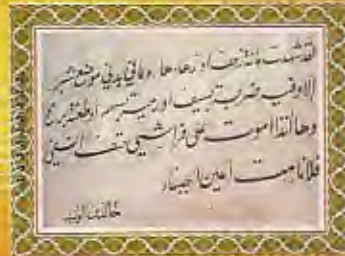 لقد شهدت مائة زحف او زهاءها، وما في بدني موضع شبر
إلا وفيه ضربة بسيف او رمية بسهم او طعنة برمح
وها انذا اموت على فراشي حتف انفي
فلا نامت أعين الجبناء
خالد بن الوليد